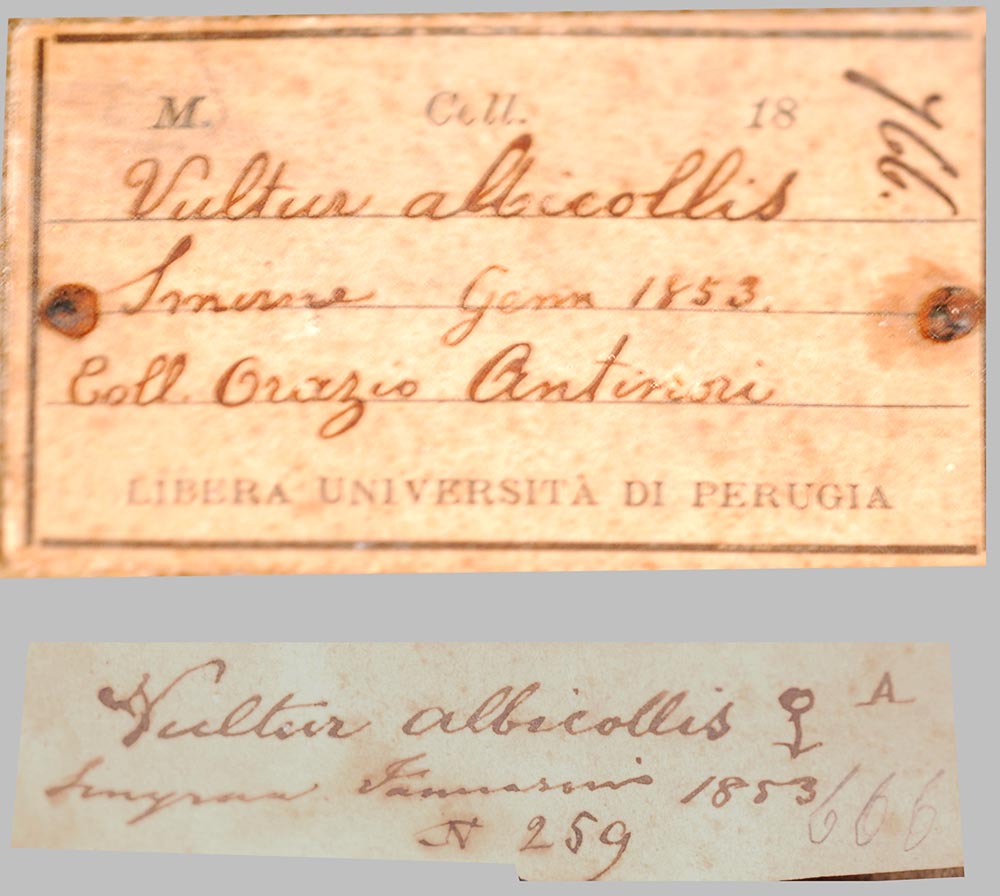 M. Coll. 18
766.
Vultur albicollis
Smirne Genn 1853.
Coll. Orazio Antinori
LIBERA UNIVERSITÀ DI PERUGIA
Vultur albicollis ♀ A
Smyrna 1853
N 259
666